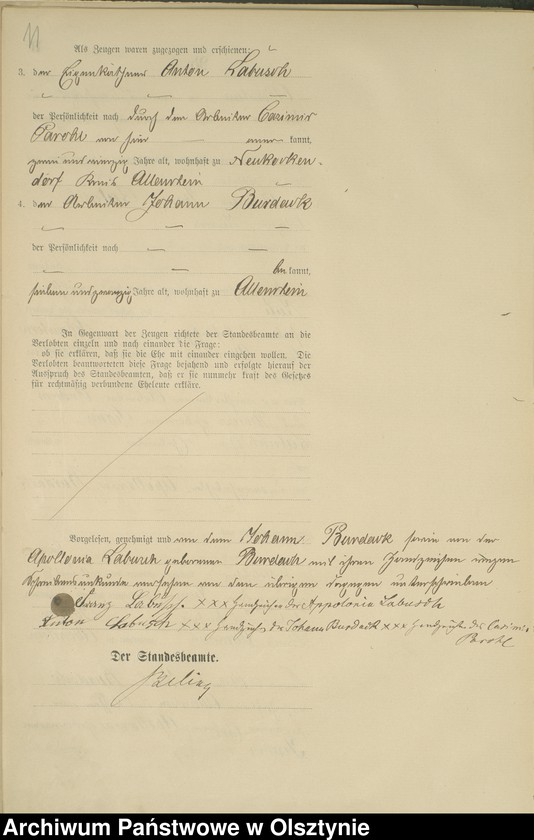 11
Als Zeugen waren zugezogen und erschienen:
3. der Eigenkäthner Anton Labusch
der Persönlichkeit nach durch den Arbeiter Casimir
Parohl
kannt,
Jahre alt, wohnhaft zu Neukocken-
dorf Kreis Allenstein
4. der Arbeiter Johann Burdack
der Persönlichkeit nach
be kannt,
sieben und zwanzig Jahre alt, wohnhaft zu Allenstein
In Gegenwart der Zeugen richtete der Standesbeamte an die
Verlobten einzeln und nach einander die Frage:
ob sie erklären, daß sie die Ehe mit einander eingehen wollen. Die
Verlobten beantworteten diese Frage bejahend und erfolgte hierauf der
Ausspruch des Standesbeamten, daß er sie nunmehr kraft des Gesetzes
für rechtmäßig verbundene Eheleute erkläre.
Vorgelesen, genehmigt und von dem Johann Burdack sowie von der
Apollonia Labusch geborenen Burdack mit ihren Handzeichen wegen
Schreibensunkunde versehen von den übrigen dagegen unterschrieben
Franz Labusch. xxx Handzeichen der Appolonia Labusch
Anton Labusch xxx Handzeich. des Johann Burdack xxx Handzeich. des Casimir
Parohl
Der Standesbeamte.
Archiwum Państwowe w Olsztynie